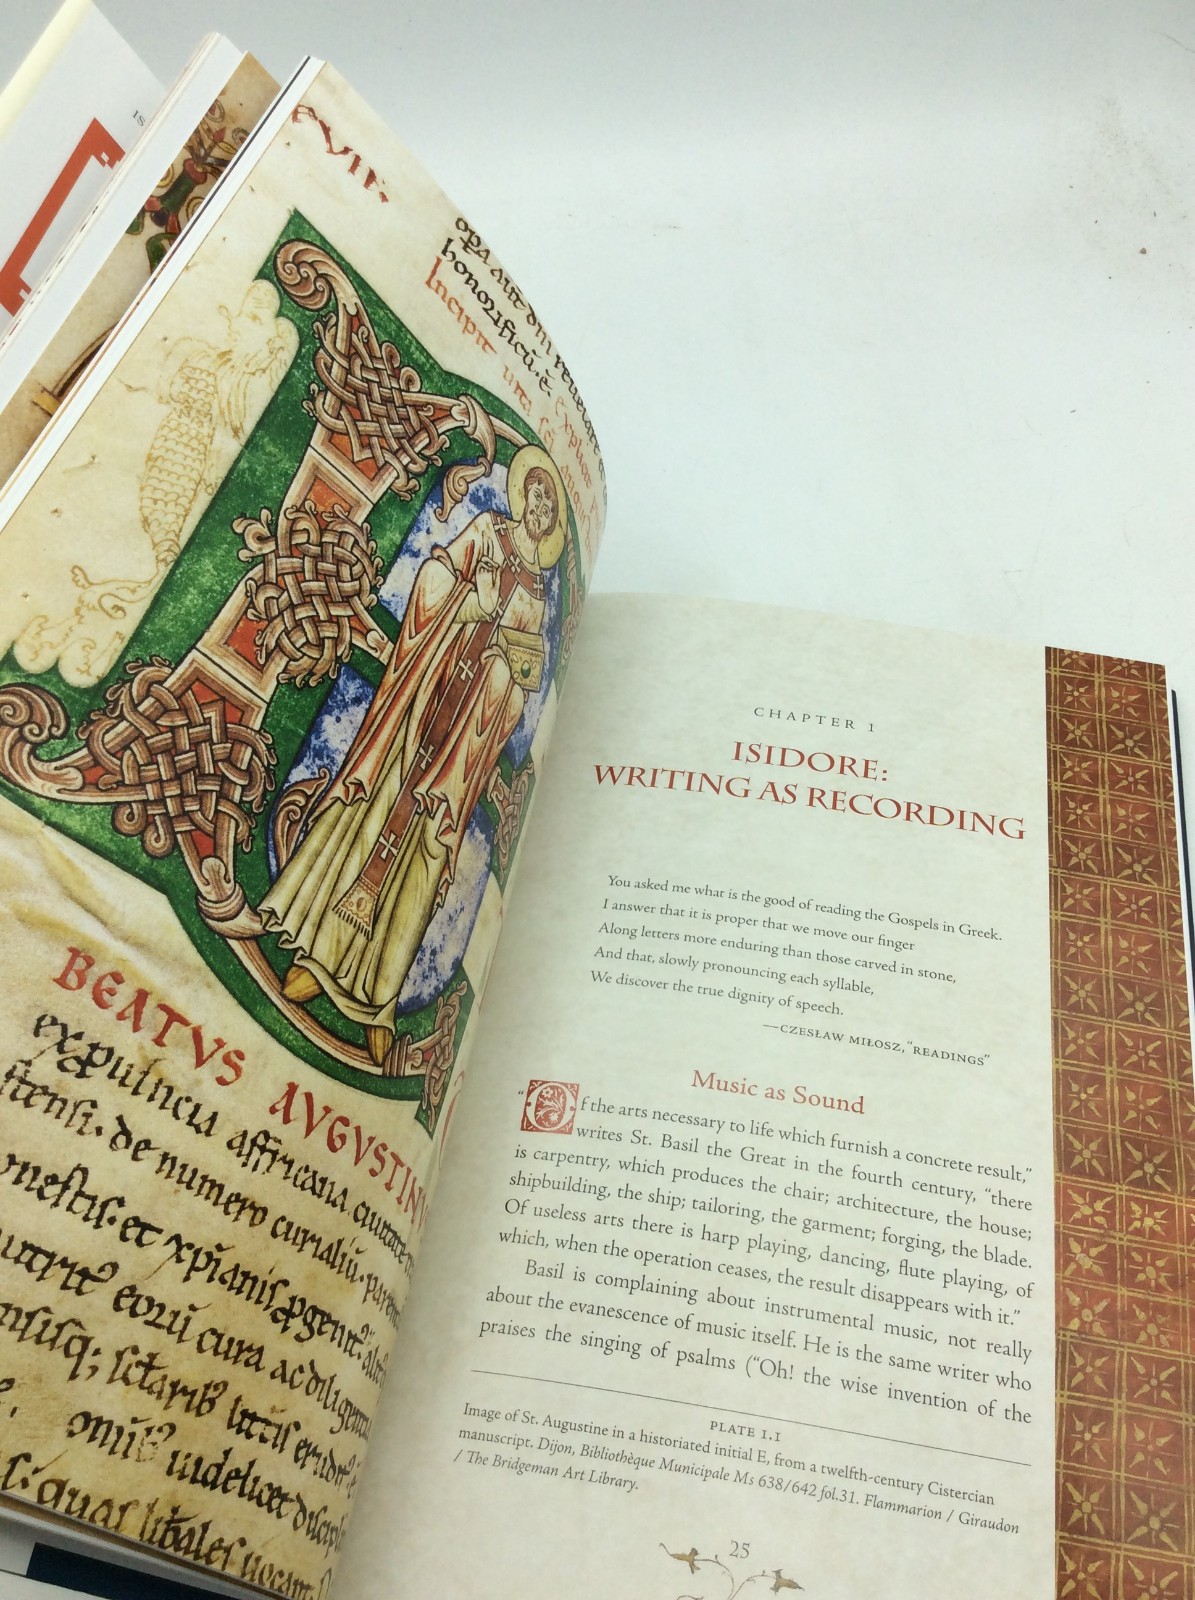 opa aut dm reuelate
honorificū. ē.
Incipit uita sci
BEATVS AVGVSTINV
ex puincia affricana. ciuitate
stensi. de numero curialiū. paren
onestis. et xpianis pgenit.
eorū cura ac diligentia
litteris erudit
onib; uidelicet discipl
s. quas libales uocant.
CHAPTER 1
ISIDORE:
WRITING AS RECORDING
You asked me what is the good of reading the Gospels in Greek.
I answer that it is proper that we move our finger
Along letters more enduring than those carved in stone,
And that, slowly pronouncing each syllable,
We discover the true dignity of speech.
—CZESŁAW MIŁOSZ, “READINGS”
Music as Sound
“Of the arts necessary to life which furnish a concrete result,”
writes St. Basil the Great in the fourth century, “there
is carpentry, which produces the chair; architecture, the house;
shipbuilding, the ship; tailoring, the garment; forging, the blade.
Of useless arts there is harp playing, dancing, flute playing, of
which, when the operation ceases, the result disappears with it.”
Basil is complaining about instrumental music, not really
about the evanescence of music itself. He is the same writer who
praises the singing of psalms (“Oh! the wise invention of the
PLATE 1.1
Image of St. Augustine in a historiated initial E, from a twelfth-century Cistercian
manuscript. Dijon, Bibliothèque Municipale Ms 638/642 fol.31. Flammarion / Giraudon
/ The Bridgeman Art Library.
25